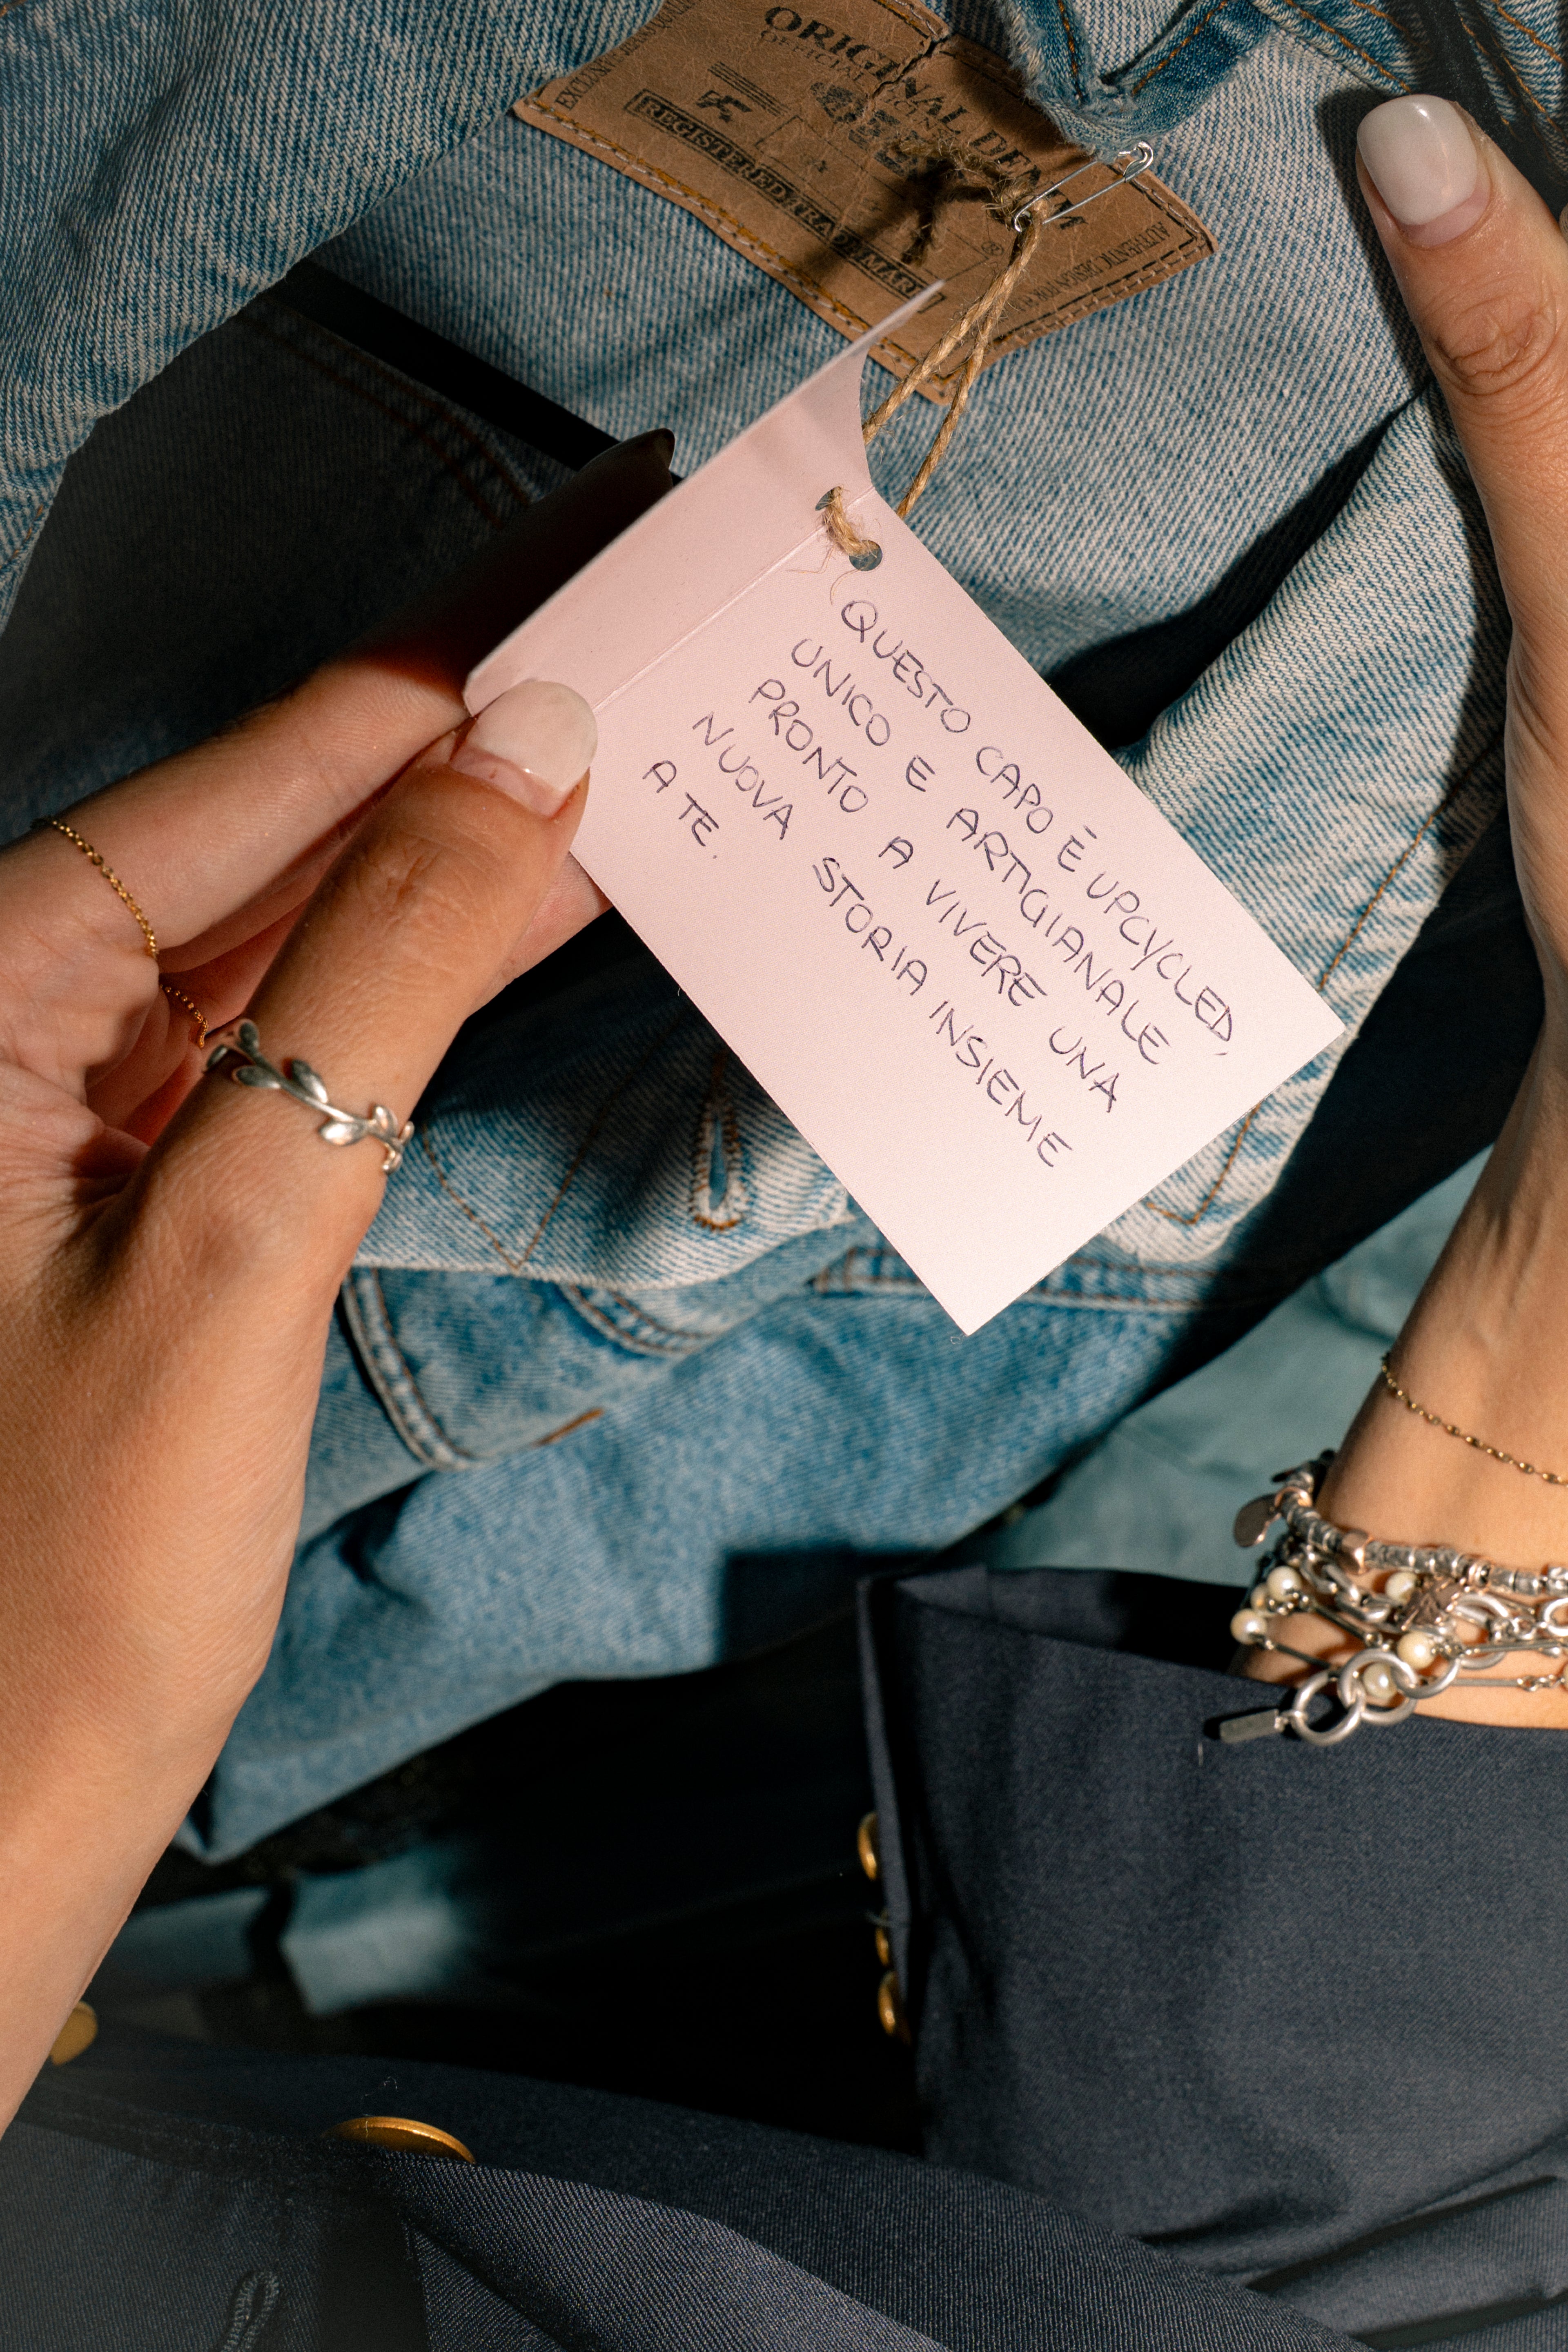 ORIGINAL DENIM
OFFICIAL
REGISTERED TRADEMARK
®
QUESTO CAPO É UPCYCLED,
UNICO E ARTIGIANALE
PRONTO A VIVERE UNA
NUOVA STORIA INSIEME
A TE.